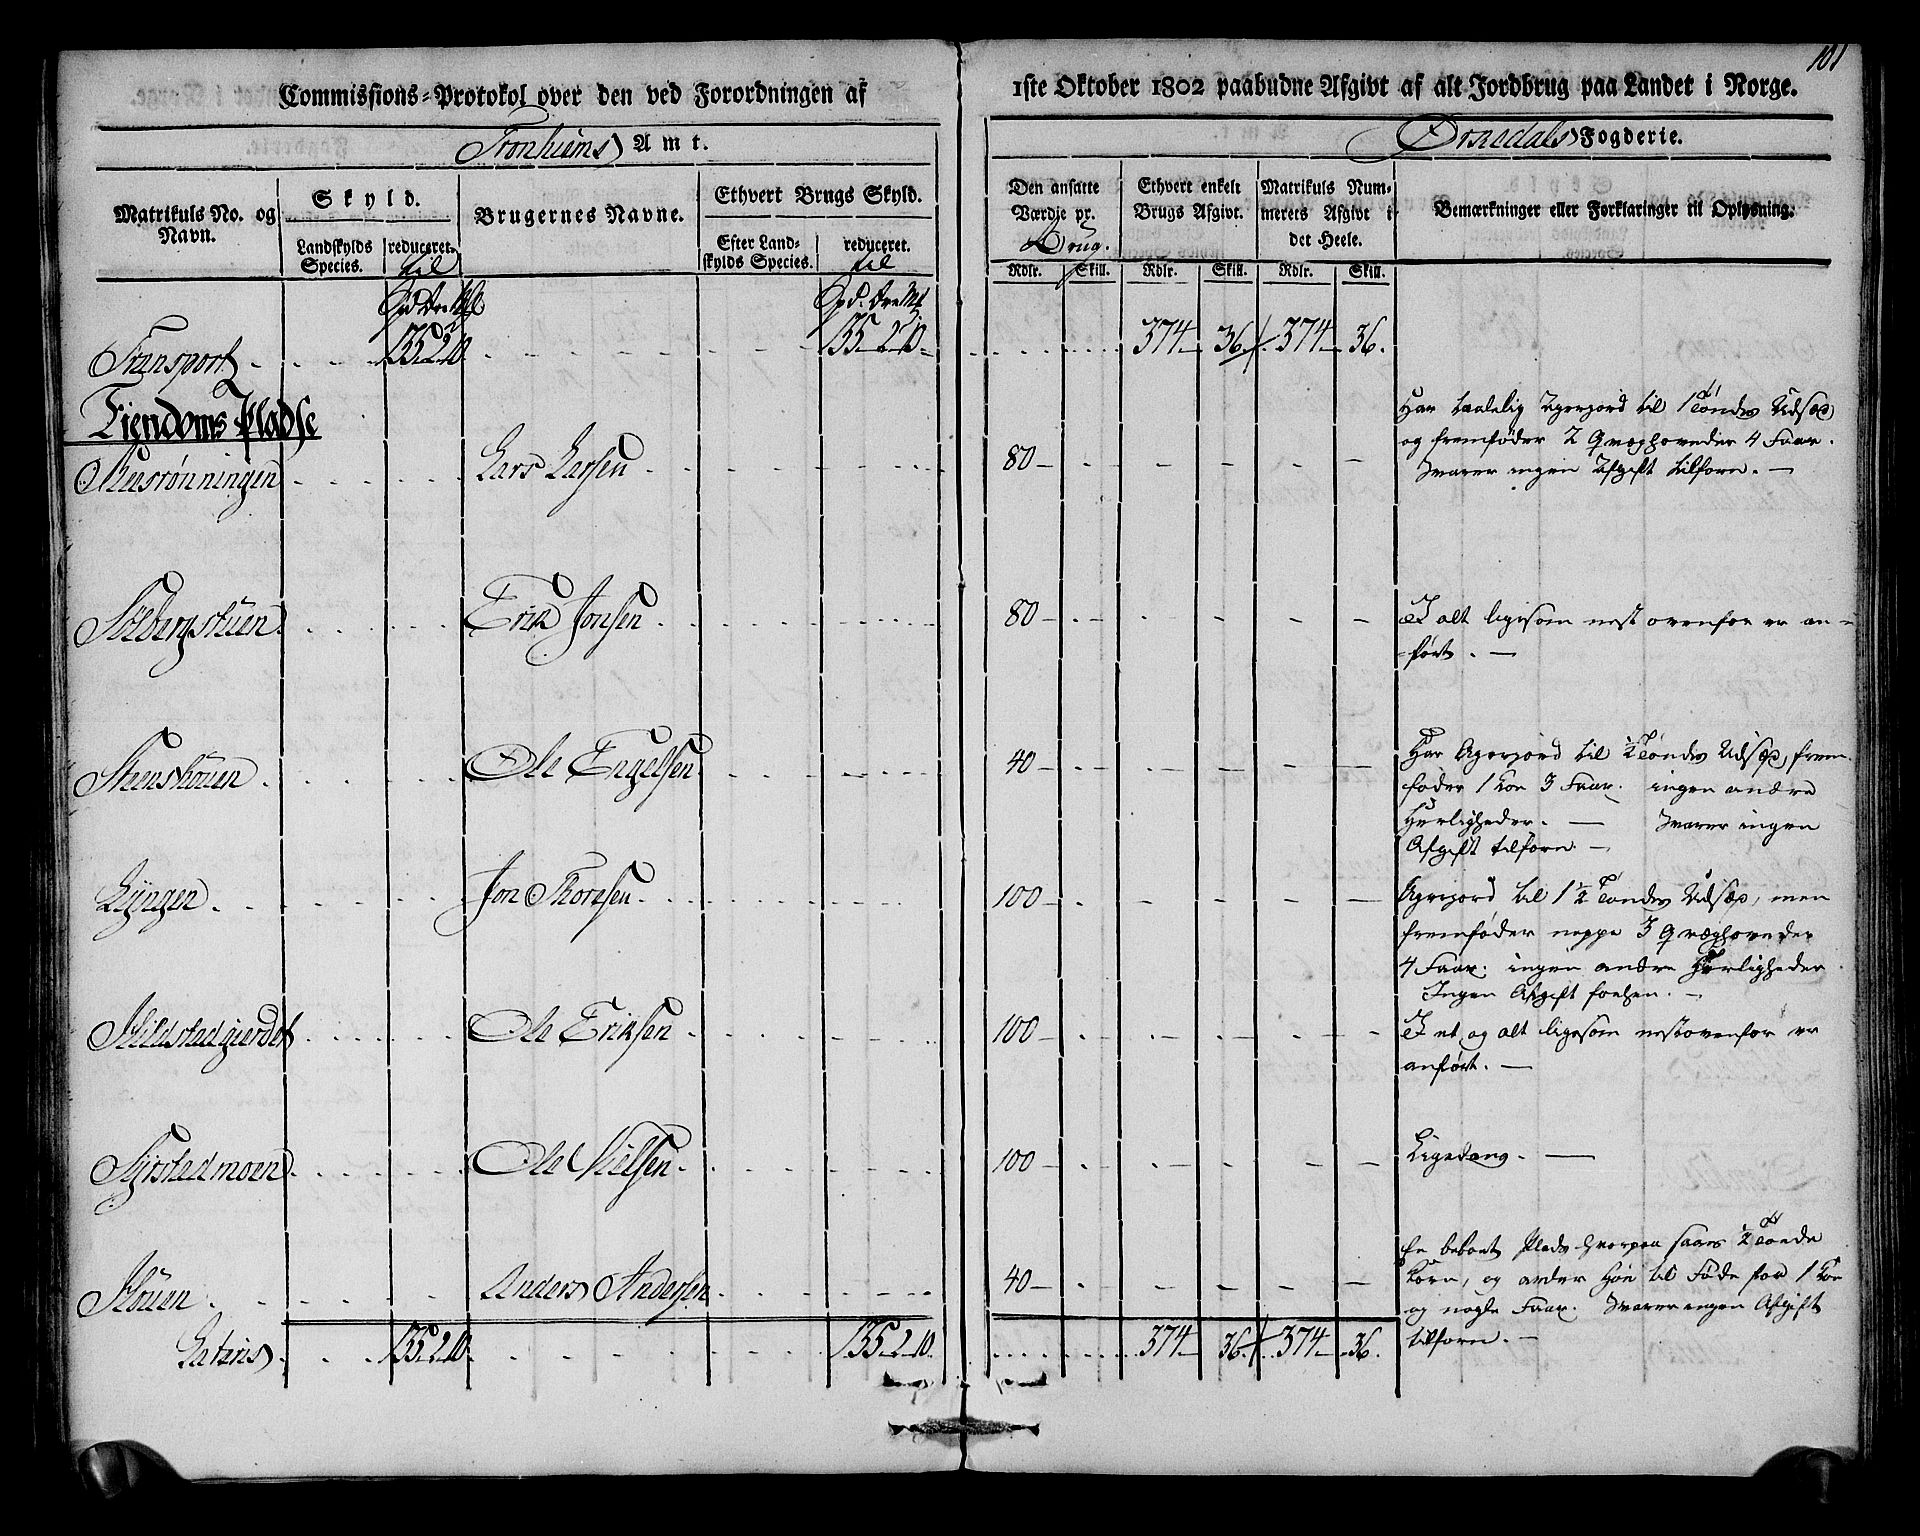 101
Commissions-Protokol over den ved Forordningen af 1ste Oktober 1802 paabudne Afgivt af alt Jordbrug paa Landet i Norge.
Tronhiems Amt. Fogderie.
Matrikuls No. og Navn.
Skyld.
Landskylds Species.
reduceret. til
Brugernes Navne.
Ethvert Brugs Skyld.
Efter Landskylds Species.
reduceret. til
Den ansatte Værdje pr. Brug.
Ethvert enkelt Brugs Afgivt.
Matrikuls Nummerets Afgivt i det Heele.
Bemærkninger eller Forklaringer til Oplysning.
Rdlr. Skill. Rdlr. Skill. Rdlr. Skill.
Transport 135 2 10 135 2 10 374 36 374 36
Eiendoms Pladse
Lars Larsen 80 Har taalelig Agerjord til 1 Tøndes Udsæd
og fremføder 2 Qvæghoveder 4 Faar.
Svarer ingen Afgift tilforn.
Solbergstuen Erik Jonsen 80 I alt ligesom nest ovenfor er an-
ført.
Steenshouen Ole Engelsen 40 Har Agerjord til 1/2 Tøndes Udsæd, frem-
føder 1 Koe 3 Faar. ingen andre
Herligheder. Svarer ingen
Afgift tilforn.
Lyngen Jon Thoresen 100 Agerjord til 1 1/2 Tøndes Udsæd, men
fremføder neppe 3 Qvæghoveder
4 Faar. ingen andre Herligheder.
Ingen Afgift forhen.
Hildstadgierdet Ole Eriksen 100 I et og alt ligesom nestovenfor er
anført.
Ole Nielsen 100 Ligedans.
Houen Anders Andersen 40 En beboet Plads hvorpaa saaes 1/2 Tønde
Korn, og avler Høe til Føde for 1 Koe
og nogle Faar. Svarer ingen Afgift
tilforn.
Lateris 135 2 10 135 2 10 374 36 374 36